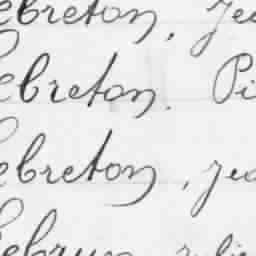 ebreton, Jea
ebreton. Pi
ebreton, Jea
ebrun